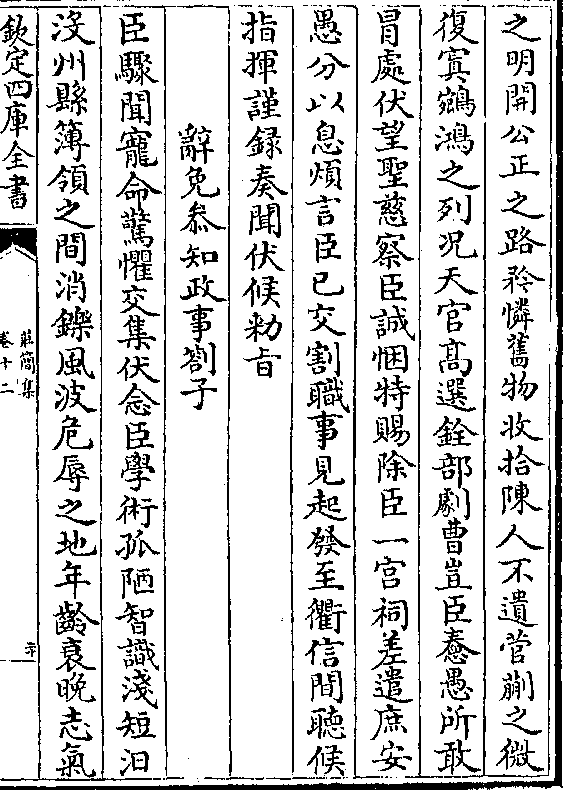 之明開公正之路矜憐舊物收拾陳人不遺菅蒯之微
復寘鵷鴻之列况天官髙選銓部劇曹豈臣惷愚所敢
冒處伏望聖慈察臣誠悃特賜除臣一宫祠差遣庶安
愚分以息煩言臣已交割職事見起發至衢信間聽候
指揮謹録奏聞伏候勅旨
辭免叅知政事劄子
臣驟聞寵命驚懼交集伏念臣學術孤陋智識淺短汩
沒州縣簿領之間消鑠風波危辱之地年齡衰晚志氣
欽定四庫全書
莊簡集
卷十二